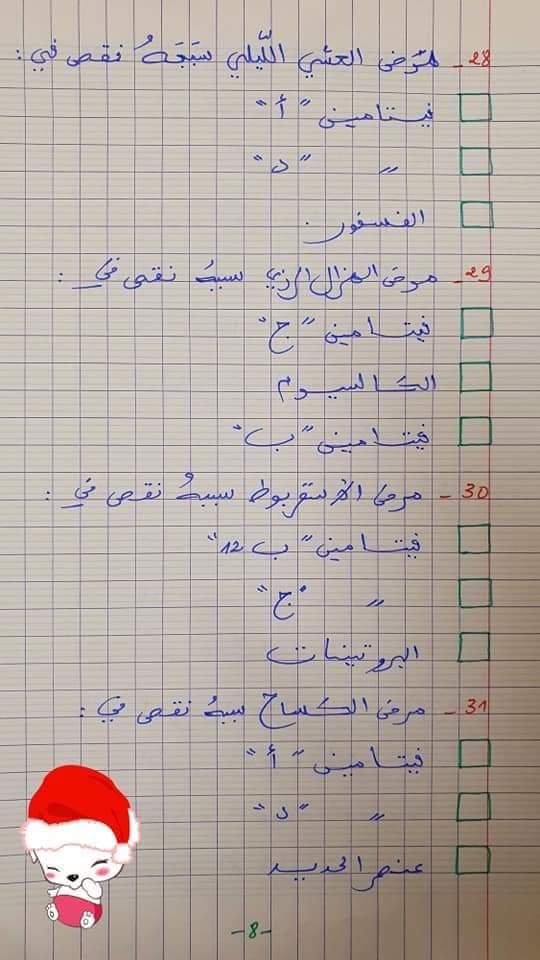 28- مرض العشي اللّيلي سببَهُ نقص في :
فيتامين "أ"
" "د"
الفسفور.
29- مرض الهزال الرزي سببهُ نقص في :
فيتامين "ج"
الكالسيوم
فيتامين "ب"
30- مرض الاسقربوط سببهُ نقص في :
فيتامين "ب 12"
" "ج"
البروتينات
31- مرض الكساح سببهُ نقص في :
فيتامين "أ"
" "د"
عنصر الحديد
-8-